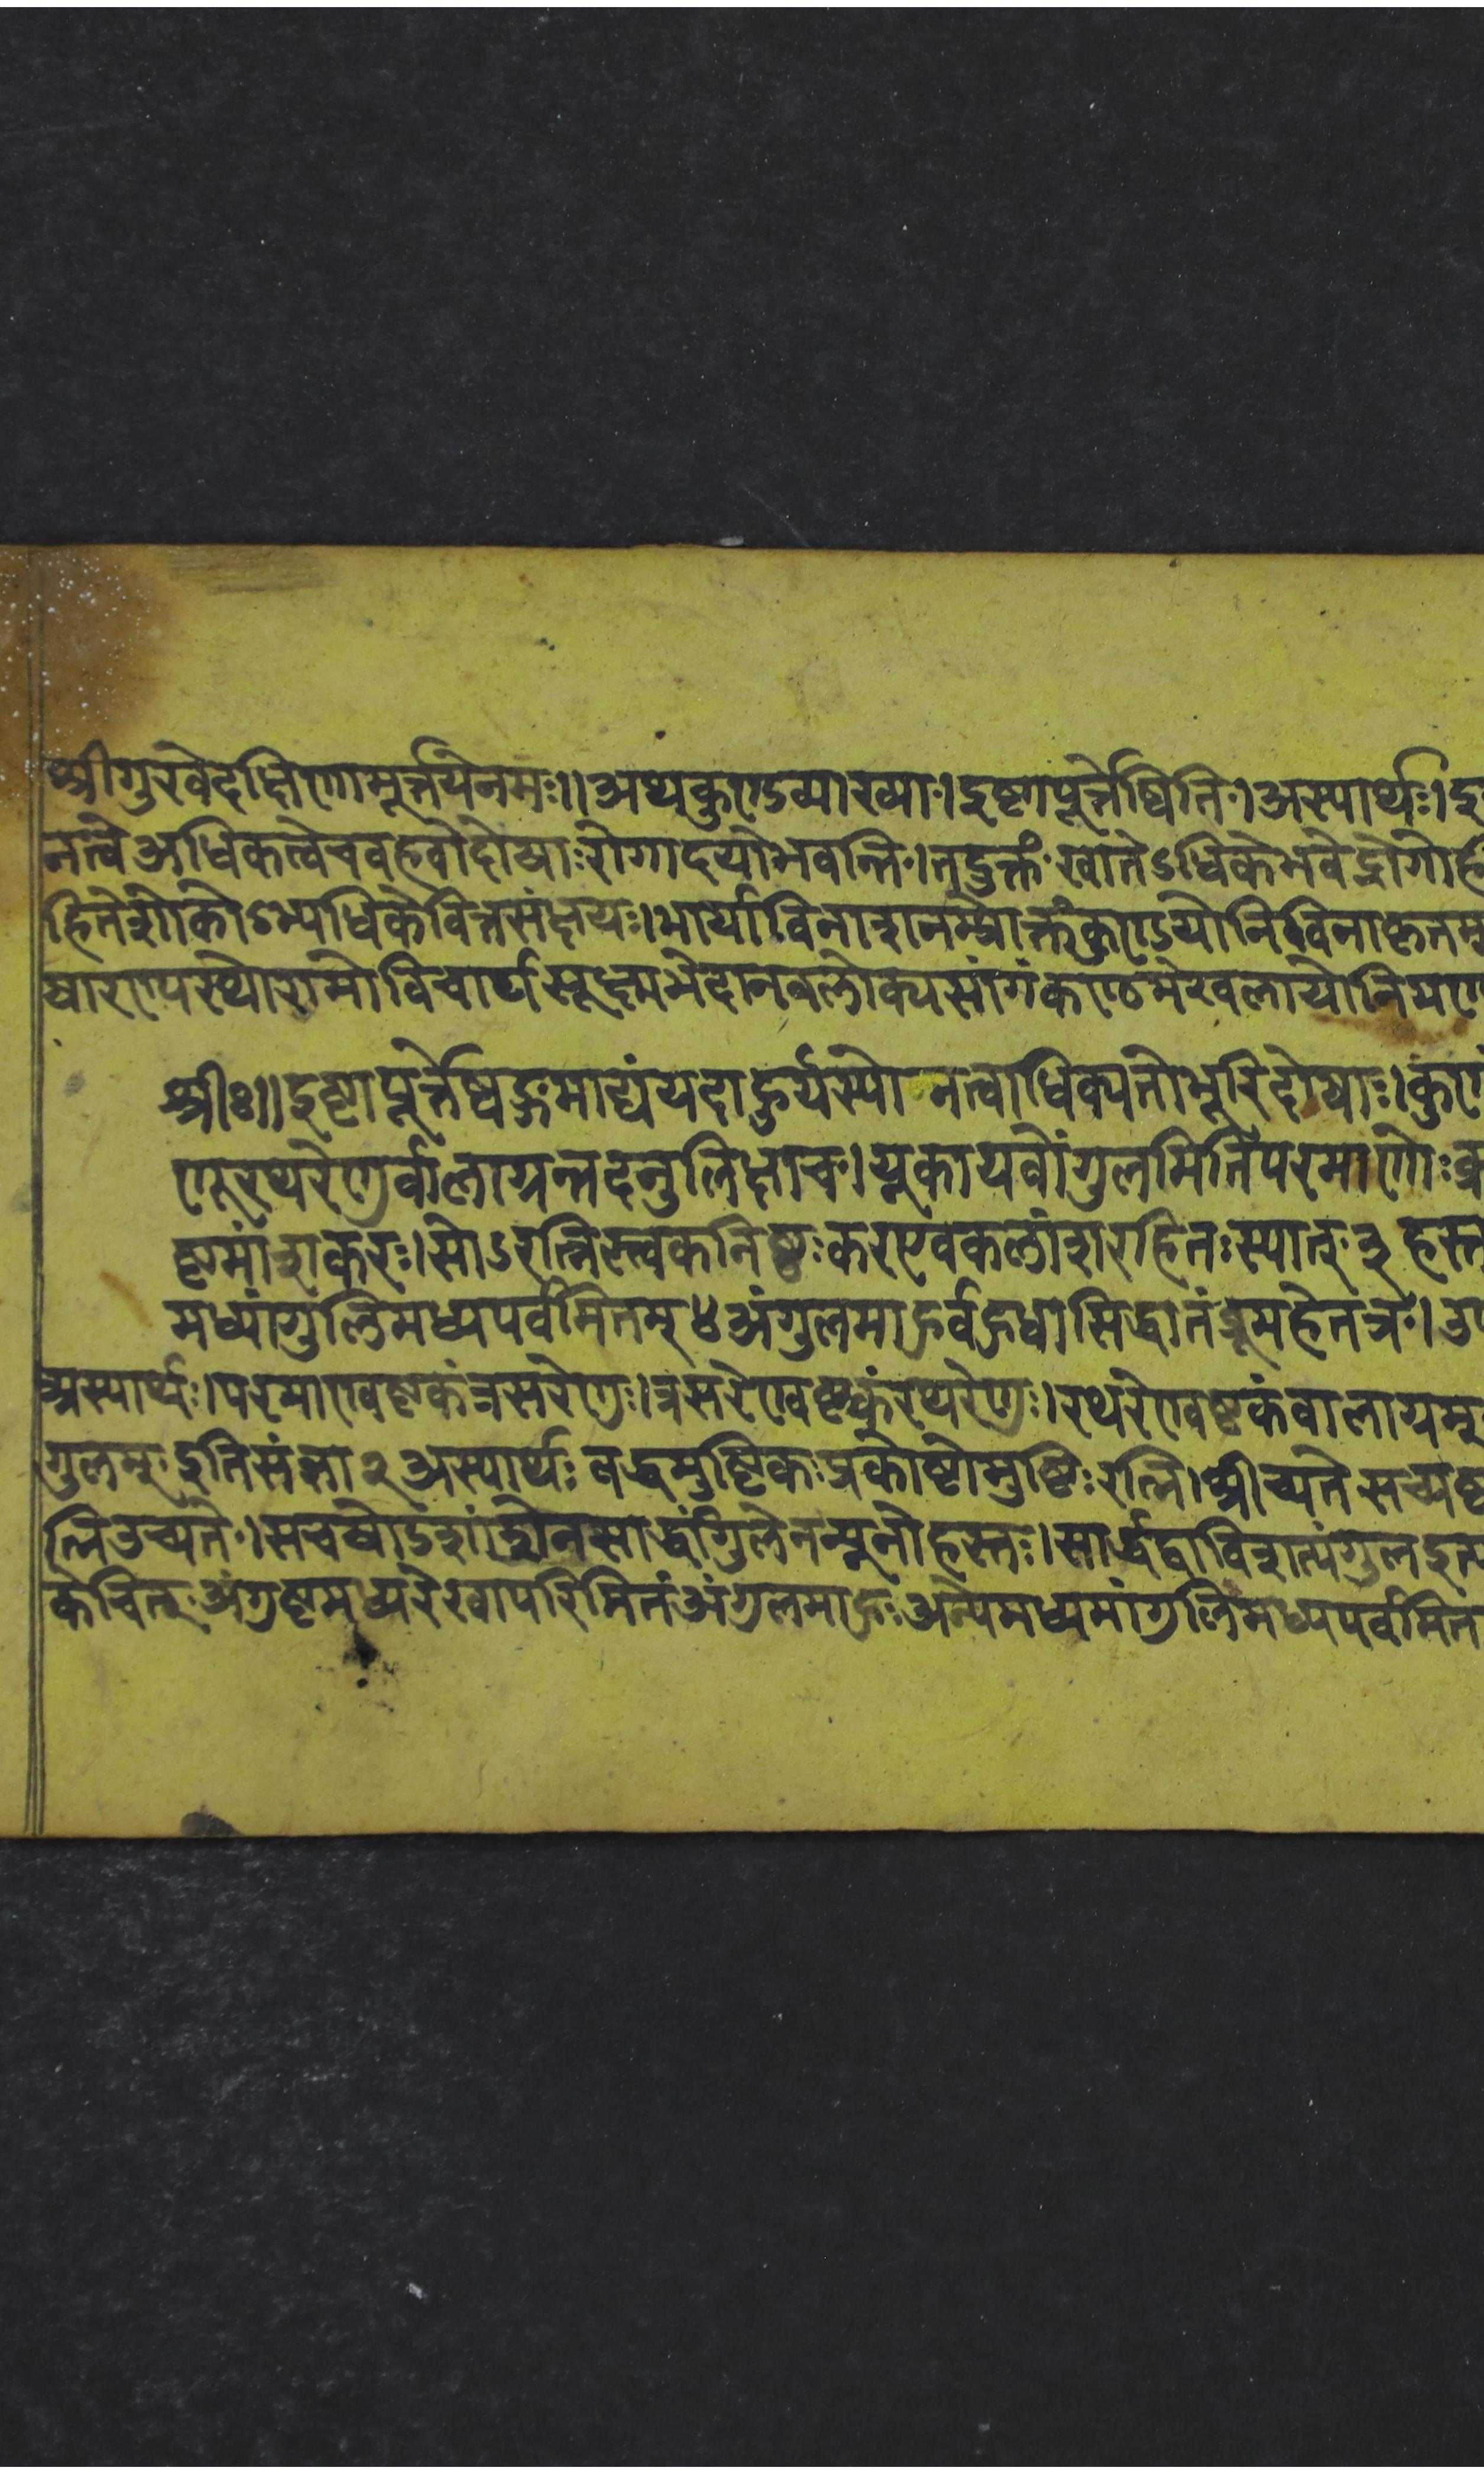 श्रीगुरवेदक्षिणामूर्त्तयेनमः॥अथकुण्डव्याख्या।इष्टापूर्त्तेष्विति।अस्यार्थः।इ
नत्वेअधिकत्वेचवहवोदोषाःरोगादयोभवन्ति।तदुक्तं खातेऽधिकेभवेद्रोगोही
हितेशोकोऽभ्यधिकेवित्तसंक्षयः।भार्याविनाशनम्प्रोक्तंकुण्डयोनिविनाकृतम
षारण्यस्थोरामोविचार्यसूक्ष्मभेदानवलोक्यसांगंकण्ठमेखलायोनिमण
श्रीः॥इष्टापूर्त्तेष्वङ्गमाद्यंयदाहुर्यस्योनत्वाधिक्यतोभूरिदोषाः।कुण
णूरथरेणुर्वालाग्रन्तदनुलिक्षाच।यूकायवोंगुलमितिपरमाणोःक्र
ष्टमांशकरः।सोऽरत्निस्त्वकनिष्ठःकरएवकलांशरहितःस्यात् ३ हस्त
मध्यांगुलिमध्यपर्वमितम् ४ अंगुलमाहुर्वहुधासिद्धान्तंब्रूमहेतत्र।उ
अस्यार्थः।परमाण्वष्टकंत्रसरेणुः।त्रसरेण्वष्टकंरथरेणुः।रथरेण्वष्टकंवालाग्रम्
गुलम् इतिसंज्ञा २ अस्यार्थः वद्धमुष्टिकःप्रकोष्ठोमुष्टिःरत्नि।श्रोच्यतेसच्यष्ट
त्निउच्यते।सचषोडशांशोनसार्द्धांगुलेनन्यूनोहस्तः।सार्द्धद्वाविंशत्यंगुलइत्य
केचित् अंगुष्ठमध्यरेखापरिमितंअंगुलमाहुःअन्येमध्यमांगुलिमध्यपर्वमित